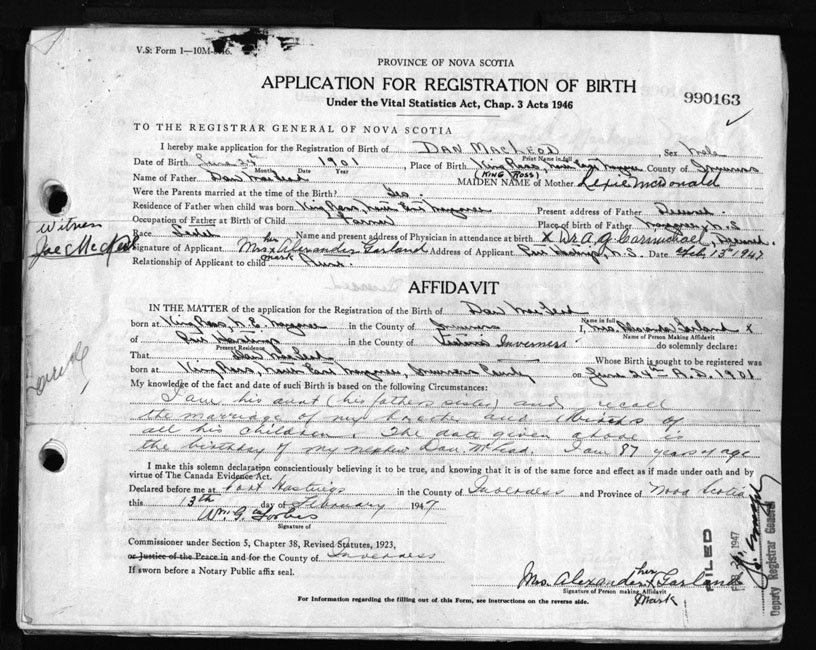 V.S: Form 1—10M-
PROVINCE OF NOVA SCOTIA
APPLICATION FOR REGISTRATION OF BIRTH
Under the Vital Statistics Act, Chap. 3 Acts 1946
990163
TO THE REGISTRAR GENERAL OF NOVA SCOTIA
I hereby make application for the Registration of Birth of DAN MACLEOD Sex Male
Print Name in full
Date of Birth June 24th 1901 Place of Birth King Ross, County of Inverness
Month Date Year (KING ROSS)
Name of Father Dan MacLeod MAIDEN NAME of Mother Lexie McDonald
Were the Parents married at the time of Birth? Yes.
Residence of Father when child was born King Ross, Present address of Father Deceased.
Occupation of Father at Birth of Child Farmer Place of birth of Father N.S
Witness
Race Name and present address of Physician in attendance at birth X Dr A. G. Carmichael, Deceased.
Joe
Signature of Applicant Mrs Alexander her x mark Garland Address of Applicant Port Hastings, N.S. Date Feb, 13th 1947
Relationship of Applicant to child Aunt.
AFFIDAVIT
IN THE MATTER of the application for the Registration of Birth of Dan MacLeod
Name in full
born at King Ross, N.E. in the County of Inverness I, Mrs. Garland X
Name of Person Making Affidavit
of Port Hastings in the County of Inverness do solemnly declare:
Present Residence
That Dan MacLeod Whose Birth is sought to be registered was
born at King Ross, North East Inverness County on June 24th A.D. 1901
My knowledge of the fact and date of such Birth is based on the following Circumstances:
I am his aunt (his fathers sister) and recall
the marriage of my brother and births of
all his children. The date given above is
the birthday of my nephew Dan McLeod. I am 87 years of age
I make this solemn declaration conscientiously believing it to be true, and knowing that it is of the same force and effect as if made under oath and by
virtue of The Canada Evidence Act.
Declared before me at Port Hastings in the County of Inverness and Province of Nova Scotia
this 13th day of February 1947
Wm. G. Forbes
Signature of
Commissioner under Section 5, Chapter 38, Revised Statutes, 1923,
or Justice of the Peace in and for the County of Inverness
If sworn before a Notary Public affix seal.
Mrs. Alexander her x mark Garland
Signature of Person making Affidavit
For Information regarding the filling out of this Form, see instructions on the reverse side.
FILED
1947
Deputy Registrar General